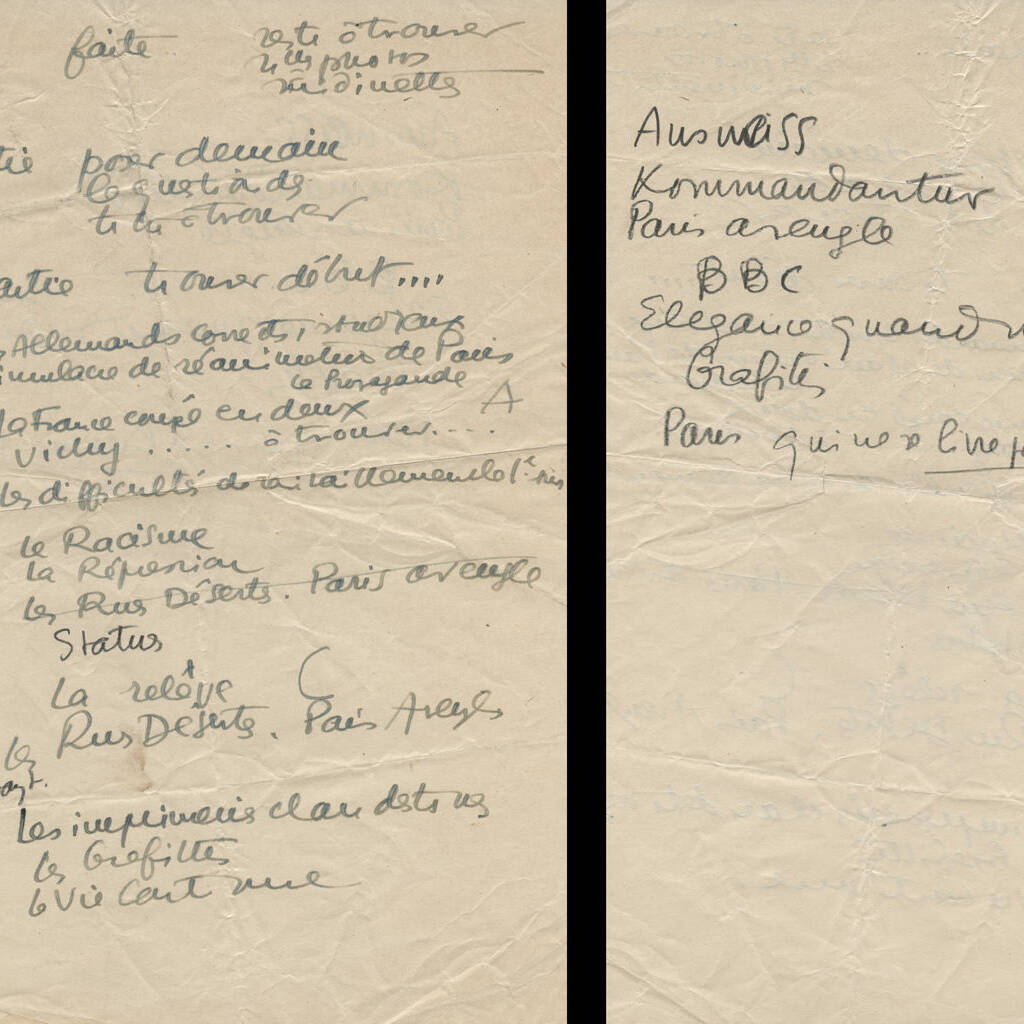 faite
reste à trouver
photos
midinettes
poser demain
la question des
à trouver
trouver début....
Allemands corrects,
simulacre de réanimation de Paris
la Propagande
La France coupé en deux
A
Vichy ...... à trouver....
les difficultés de ravitaillement de
le Racisme
la Répression
les Rues Déserts. Paris aveugle
Status
La relève
les Rues Déserts. Paris Aveugle
Les imprimeries clandestines
les Grafittis
la Vie Continue
Ausweiss
Kommandantur
Paris aveugle
BBC
Elegance quand
Grafitis
Paris qui ne se livre